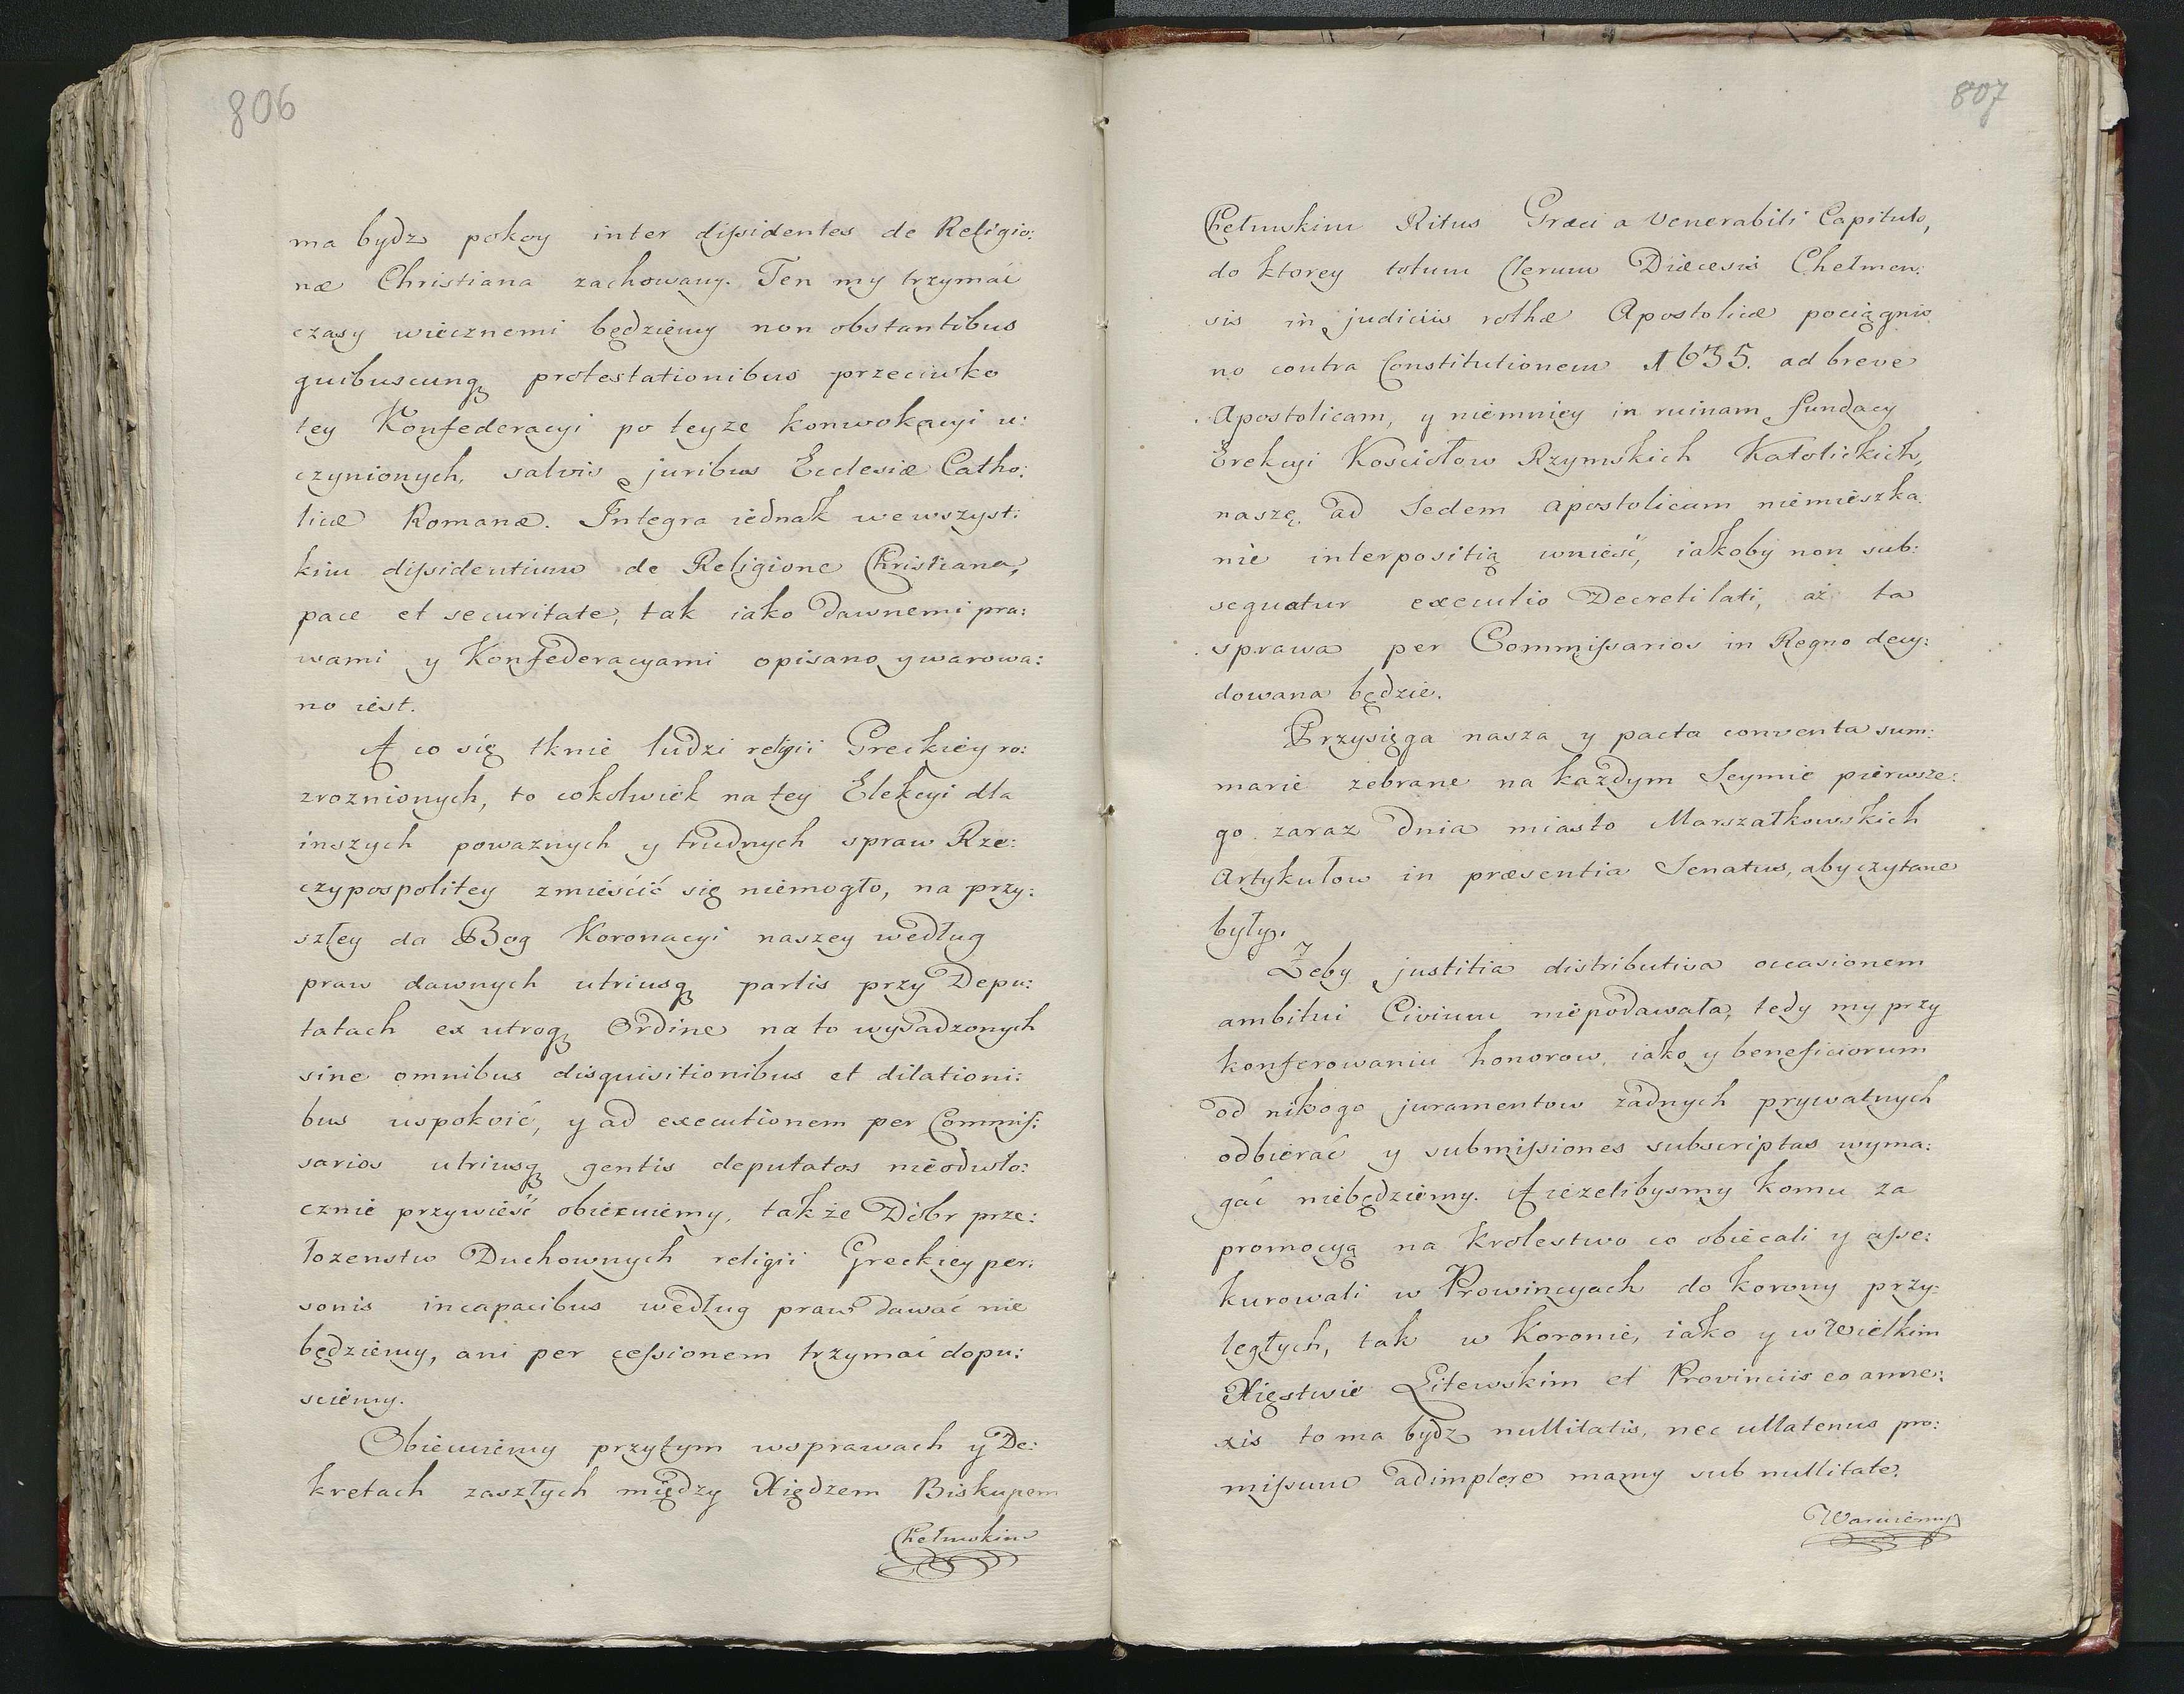 806
ma bydz pokoy inter dissidentes de Religio:
næ Christiana zachowany. Ten my trzymać
czasy wiecznemi będziemy non obstantibus
quibuscunqȝ protestationibus przeciwko
tey Konfederacyi po teyze konwokacyi u:
czynionych, salvis juribus Ecclesiæ Catho:
licæ Romanæ. Integra iednak we wszyst:
kim dissidentium de Religione Christiana,
pace et securitate, tak iako dawnemi pra:
wami y Konfederacyami opisano y warowa:
no iest.
A co się tknie ludzi religii Greckiey ro:
zroznionych, to cokolwiek na tey Elekcyi dla
inszych powaznych y trudnych spraw Rze:
czypospolitey zmieścić się niemogło, na przy:
szłey da Bog Koronacyi naszey według
praw dawnych utriusqȝ partis przy Depu:
tatach ex utroqȝ Ordine na to wysadzonych
sine omnibus disquisitionibus et dilationi:
bus uspokoić, y ad executionem per Commis:
sarios utriusqȝ gentis deputatos nieodwło:
cznie przywieść obiecuiemy, także Dobr prze:
łozenstw Duchownych religii Greckiey per:
sonis incapacibus według praw dawać nie
będziemy, ani per cessionem trzymać dopu:
sciemy.
Obiecuiemy przytym w sprawach y De:
kretach zaszłych między Xiędzem Biskupem
Chełmskim
807
Chełmskim Ritus Græci a Venerabili Capitulo,
do ktorey totum Clerum Diæcesis Chełmen:
sis in judiciis rothæ Apostolicæ pociągnio
no contra Constitutionem 1635. ad breve
Apostolicam, y niemniey in ruinam fundacy
Erekcyi Kosciołow Rzymskich Katolickich,
naszę ad Sedem Apostolicam niemieszka
nie interpositią wnieść, iakoby non sub:
sequatur executio Decreti lati, aż ta
sprawa per Commissarios in Regno decy:
dowana będzie.
Przysięga nasza y pacta conventa sum:
marie zebrane na każdym Seymie pierwsze:
go zaraz dnia miasto Marszałkowskich
Artykułow in præsentia Senatus, aby czytane
były.
Zeby justitia distributiva occasionem
ambitui Civium niepodawała, tedy my przy
konferowaniu honorow, iako y beneficiorum
od nikogo juramentow żadnych prywatnych
odbierać y submissiones subscriptas wyma:
gać niebędziemy. A iezelibysmy komu za
promocyą na Krolestwo co obiecali y asse:
kurowali w Prowincyach do korony przy:
ległych, tak w Koronie, iako y w Wielkim
Xięstwie Litewskim et Provinciis eo anne:
xis to ma bydz nullitatis, nec ullatenus pro:
missum adimplere mamy sub nullitate.
Waruiemy